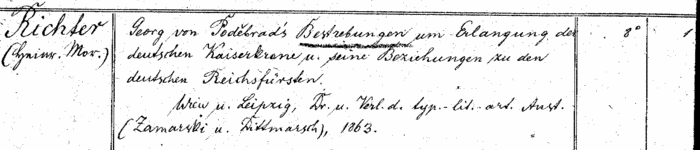 Richter Georg von Poděbrad's Bestrebungen um Erlangung der 8° 1
(Heinr. Mor.) deutschen Kaiserkrone u. seine Beziehungen zu den
deutschen Reichsfürsten.
Wien u. Leipzig, Dr. u. Verl. d. typ.-lit.-art. Anst.
(Zamarski u. Dittmarsch), 1863.